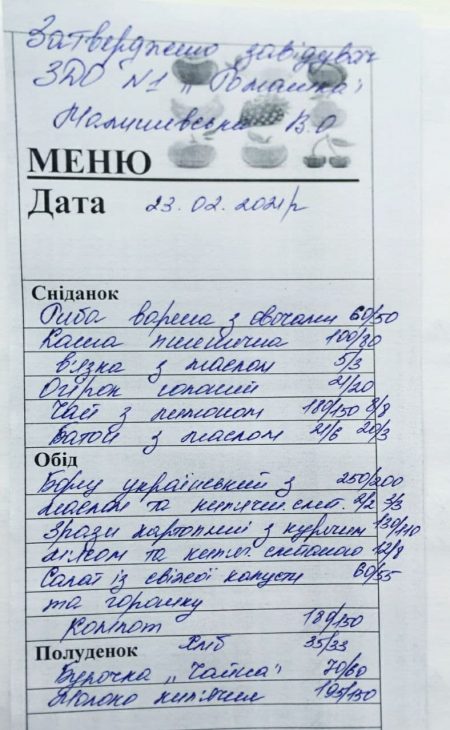 Затверджено завідувач
ЗДО №1 „Ромашка"
В.О
МЕНЮ
Дата 23.02.2021р
Сніданок
Риба варена з овочами 60/50
Каша пшенична 100/80
в'язка з маслом 5/3
Огірок солоний 21/20
Чай з лимоном 180/150 8/8
Батон з маслом 21/6 20/3
Обід
Борщ український з 250/200
маслом та кипяч. смет. 2/2 3/3
Зрази картопляні з курячим 130/110
мясом та кипяч. сметаною 12/9
Салат із свіжої капусти 60/55
та горошку
Компот 180/150
Полуденок Хліб 35/33
Булочка „Чайна" 70/60
Молоко кипячен 195/150